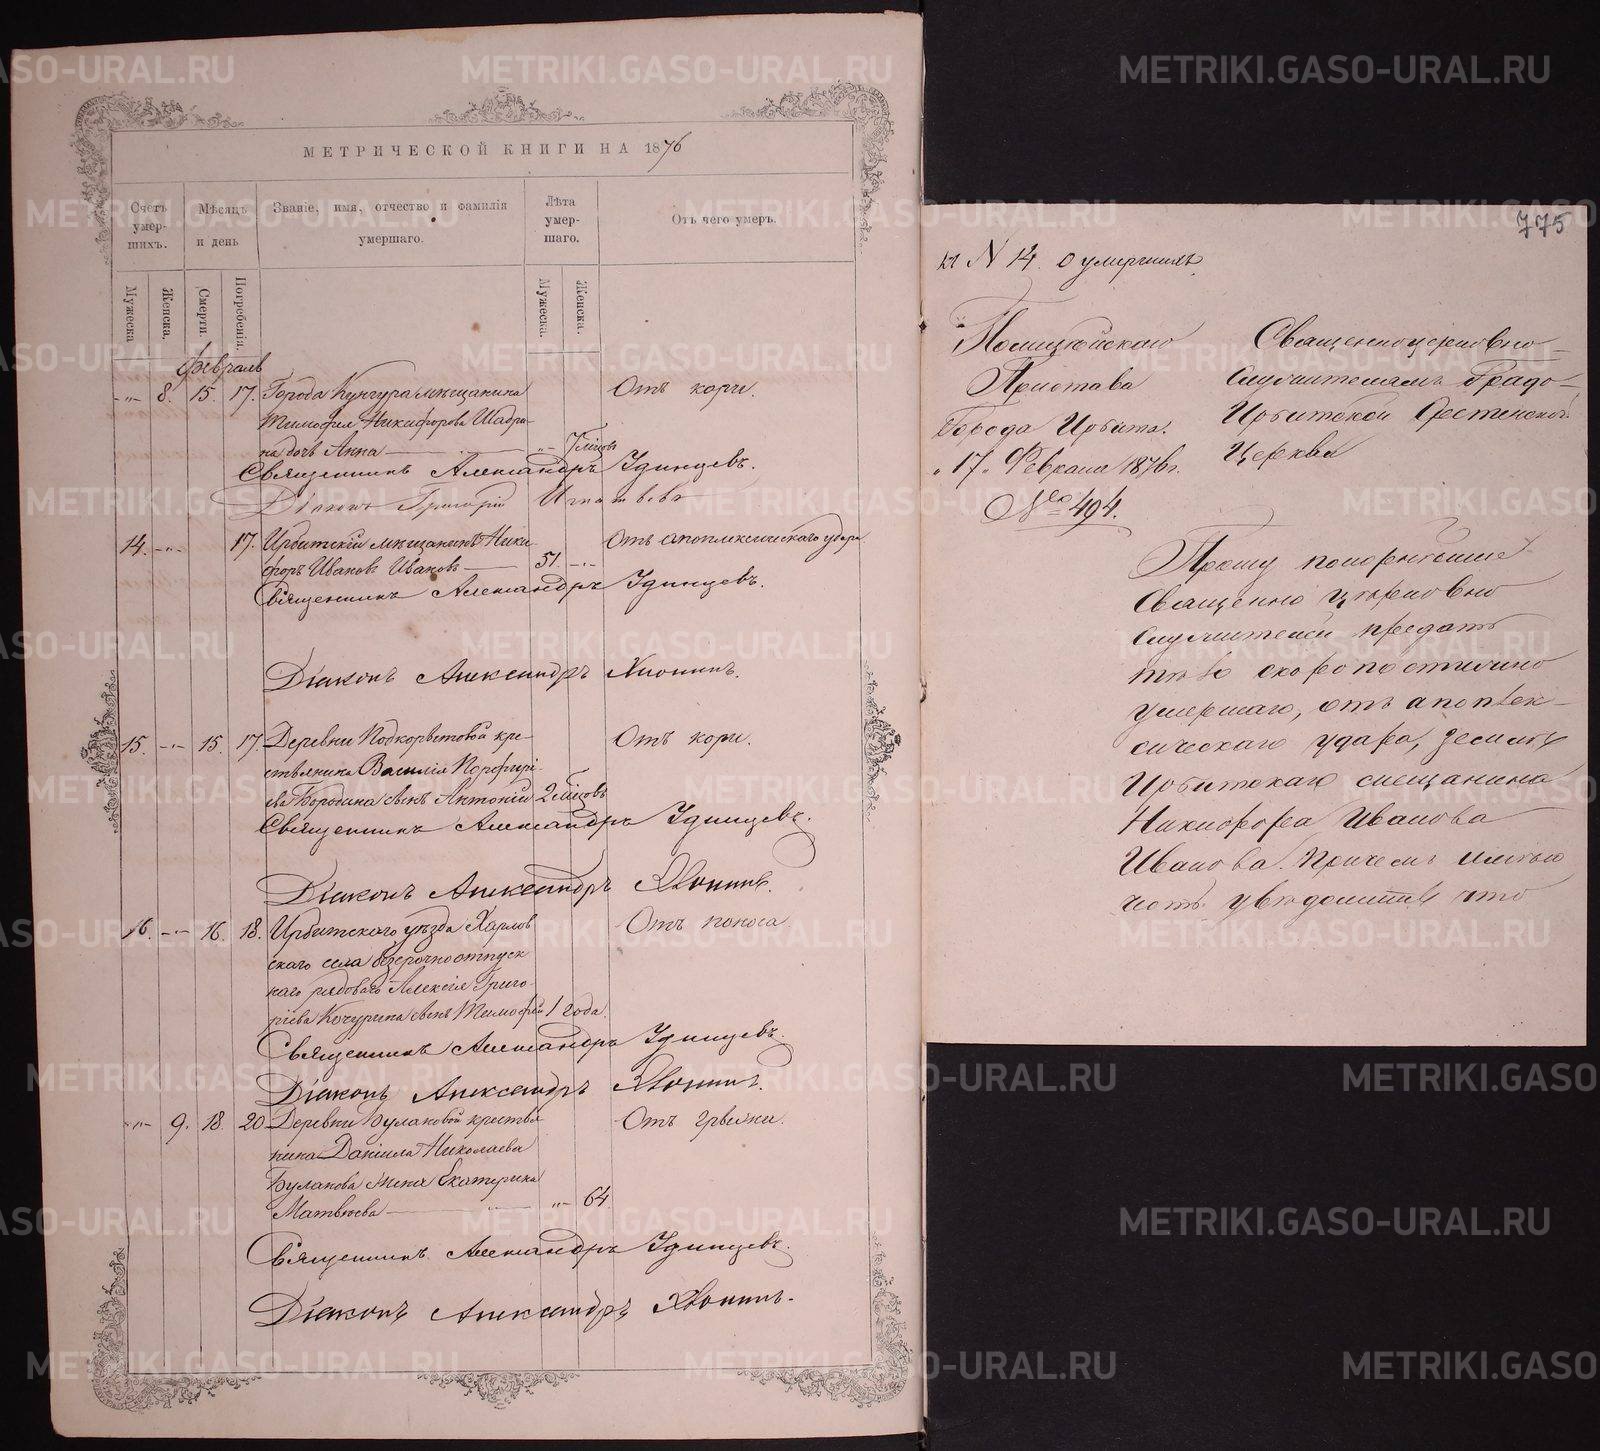 МЕТРИЧЕСКОЙ КНИГИ НА 1876
Счетъ умершихъ.
Мѣсяцъ и день
Званіе, имя, отчество и фамилія умершаго.
Лѣта умершаго.
Отъ чего умеръ.
Мужеска
Женска.
Смерти
Погребенія.
Мужеска.
Женска.
февраль
-"- 8. 15. 17. Города Кунгура мѣщанина Отъ кори.
Тимофея Никифорова Шадри-
на дочь Анна -"- 7 мѣсцовъ
Священникъ Александръ Удинцевъ.
Діаконъ Григорій Игнатьевъ
14. -"- 17. Ирбитскій мѣщанинъ Ники- Отъ апоплексическаго удара
форъ Ивановъ Ивановъ 51. -"-
Священникъ Александръ Удинцевъ.
Діаконъ Александръ Хіонинъ.
15. -"- 15. 17 Деревни Подкорытовой кре- Отъ кори.
стьянина Василія Порфирі-
ева Бородина сынъ Антоній 2 мѣсцовъ
Священникъ Александръ Удинцевъ.
Діаконъ Александръ Хіонинъ.
16. -"- 16. 18. Ирбитскаго уѣзда Харлов Отъ поноса
скаго села безсрочноотпуск
наго рядоваго Алексія Григо-
ріева Кочурина сынъ Тимофей 1 года.
Священникъ Александръ Удинцевъ.
Діаконъ Александръ Хіонинъ.
-"- 9. 18. 20 Деревни Булановой крестья
нина Даніила Николаева
Буланова жена Екатерина
Матвѣева -"- 64
Священникъ Александръ Удинцевъ.
Діаконъ Александръ Хіонинъ.
775
къ N 14. о умершихъ
Полицейскаго
Пристава
Города Ирбита.
"17" Февраля 1876 г.
№ 494.
Священноцерковно-
служителямъ Градо-
Ирбитской
Церкви
Прошу покорнѣйше
Священно церковно
служителей предать
тѣло скоропостижно
умершаго, отъ апоплек-
сическаго удара, землѣ
Ирбитскаго мещанина
Никифора Иванова
Иванова. Причемъ имѣю
честь увѣдомить что
METRIKI.GASO-URAL.RU